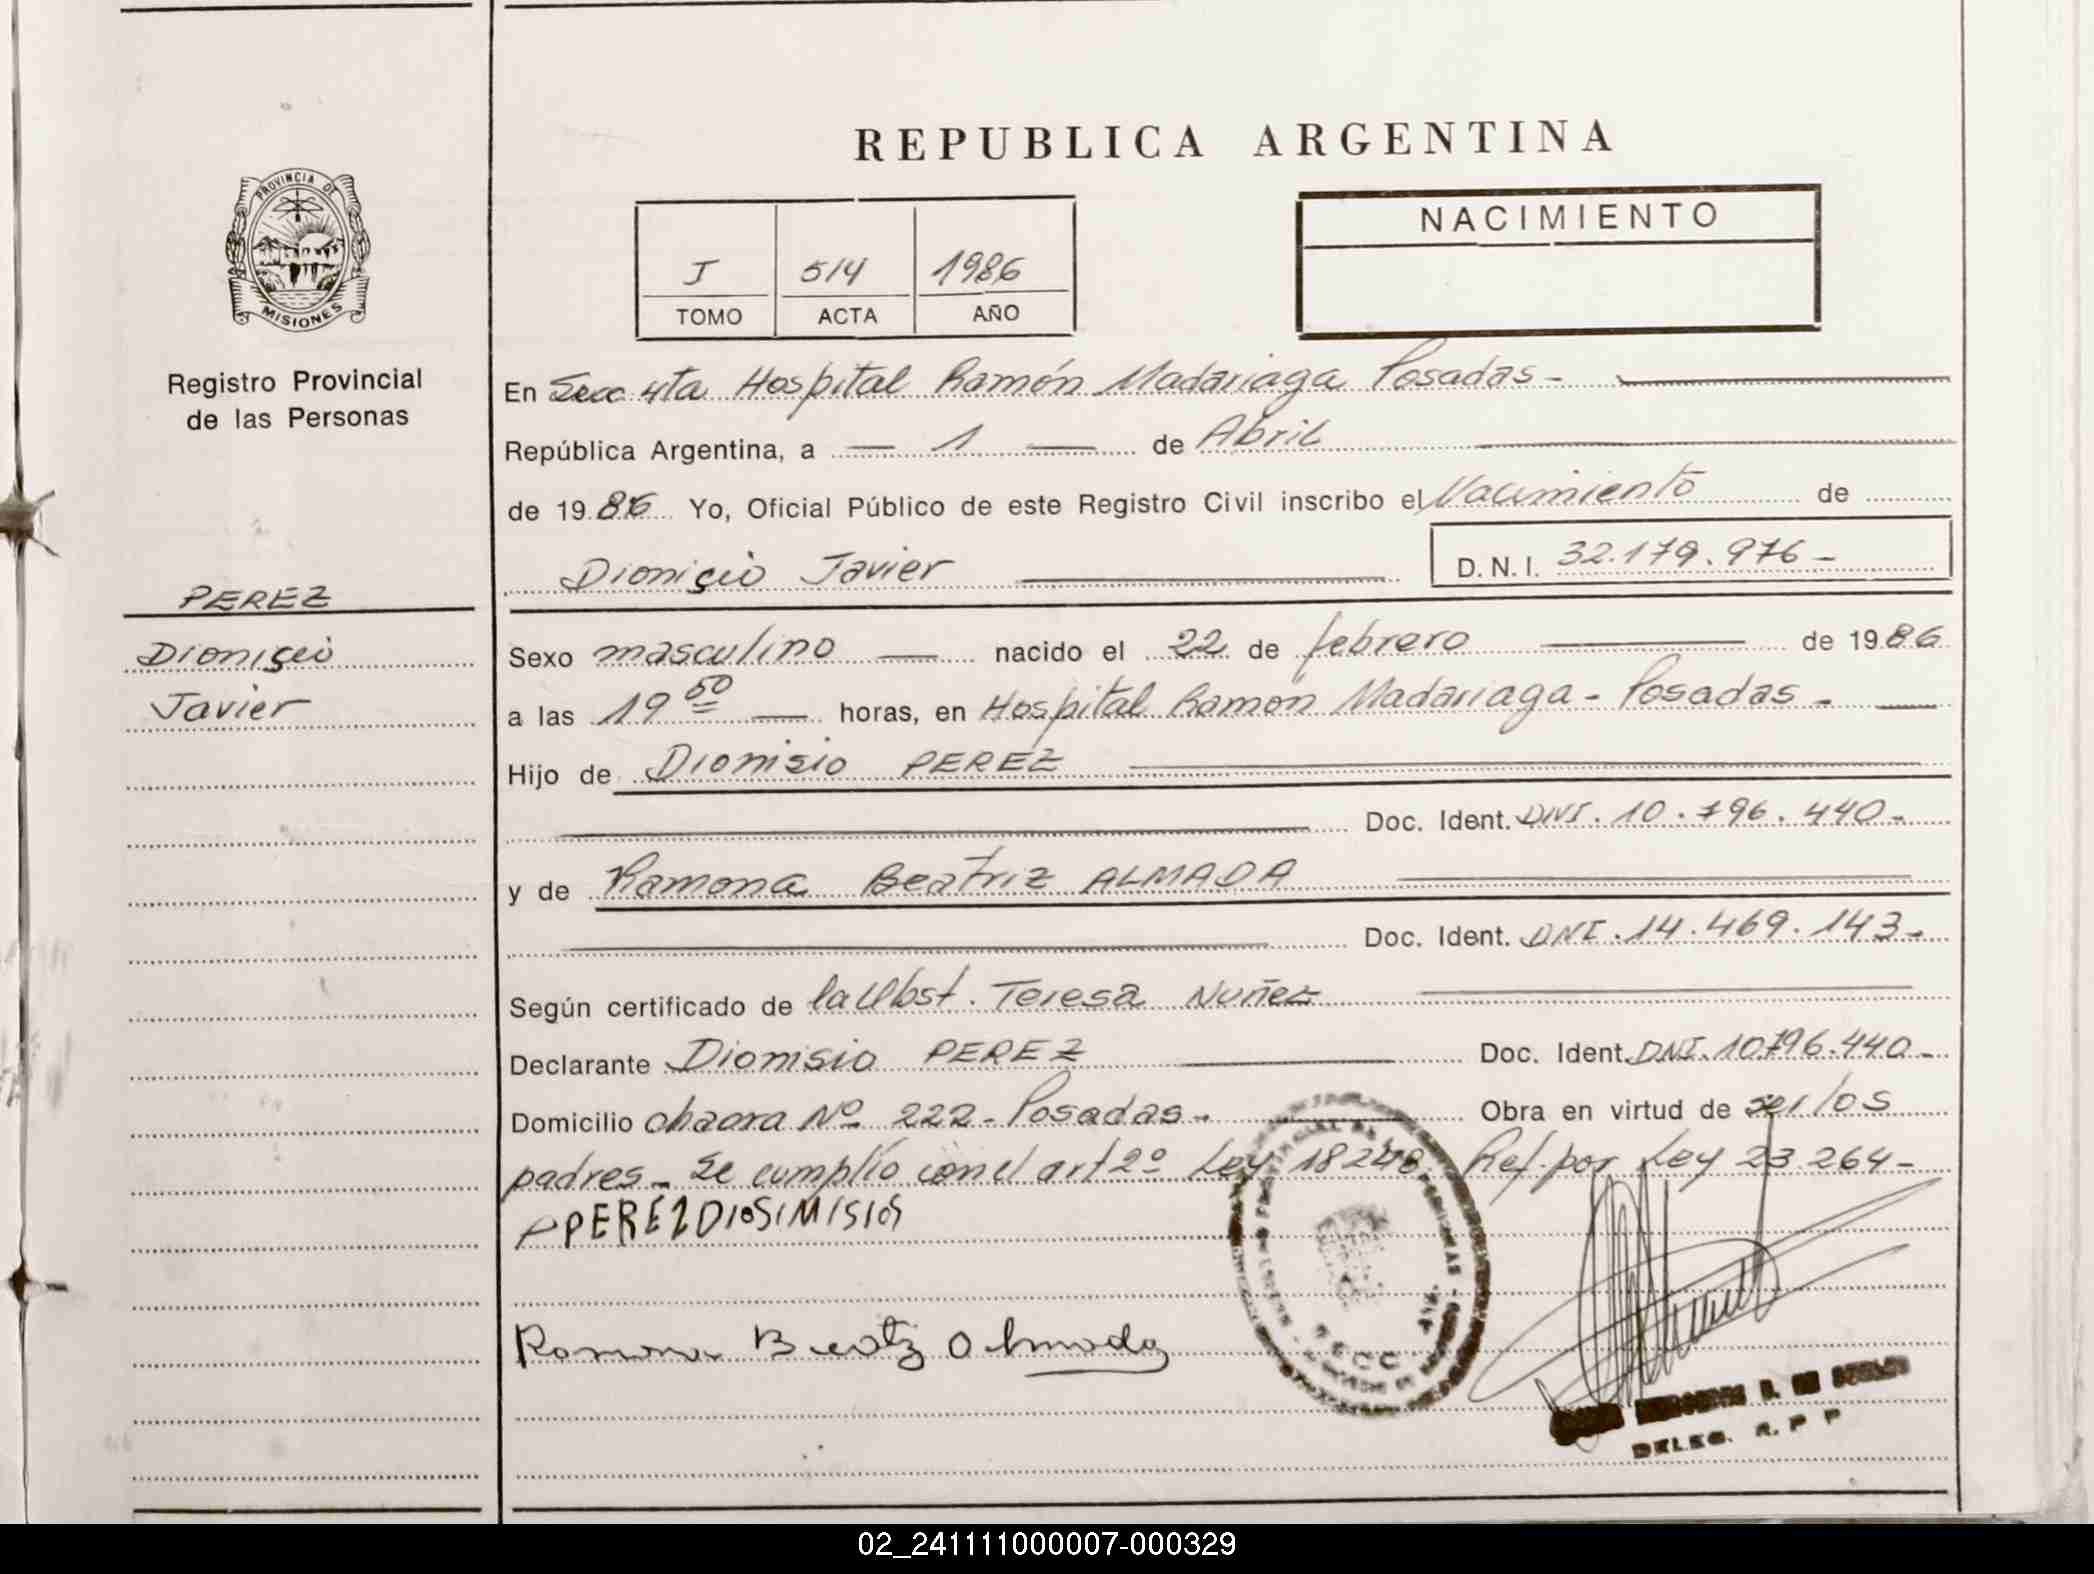 REPUBLICA ARGENTINA
PROVINCIA DE
MISIONES
Registro Provincial
de las Personas
PEREZ
Dionisio
Javier
I 514 1986
TOMO ACTA AÑO
NACIMIENTO
En Secc 4ta Hospital Ramón Madariaga Posadas -
República Argentina, a — 1 — de Abril
de 1986 Yo, Oficial Público de este Registro Civil inscribo el Nacimiento de
Dionisio Javier D.N.I. 32.179.976 -
Sexo masculino — nacido el 22 de febrero de 1986
a las 19 50 — horas, en Hospital Ramon Madariaga - Posadas -
Hijo de Dionisio PEREZ
Doc. Ident. DNI. 10.796.440 -
y de Ramona Beatriz ALMADA
Doc. Ident. DNI. 14.469.143 -
Según certificado de la Obst. Teresa Nuñez
Declarante Dionisio PEREZ Doc. Ident. DNI. 10796.440 -
Domicilio chacra Nº 222 - Posadas - Obra en virtud de ser los
padres - Se cumplio con el art 2º Ley 18248. Ref. por Ley 23.264 -
PEREZ DIOSIMISIOS
Ramona Beatriz Almada
DELEG. R. P. P.
02_241111000007-000329